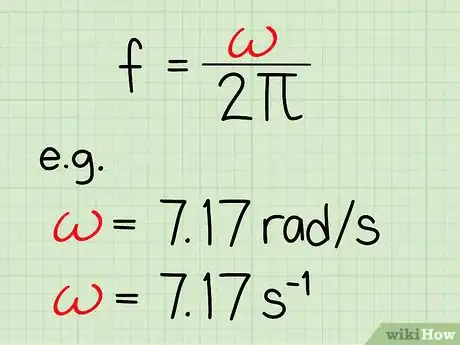 f = ω/2π
e.g.
ω = 7.17 rad/s
ω = 7.17 s⁻¹
wikiHow